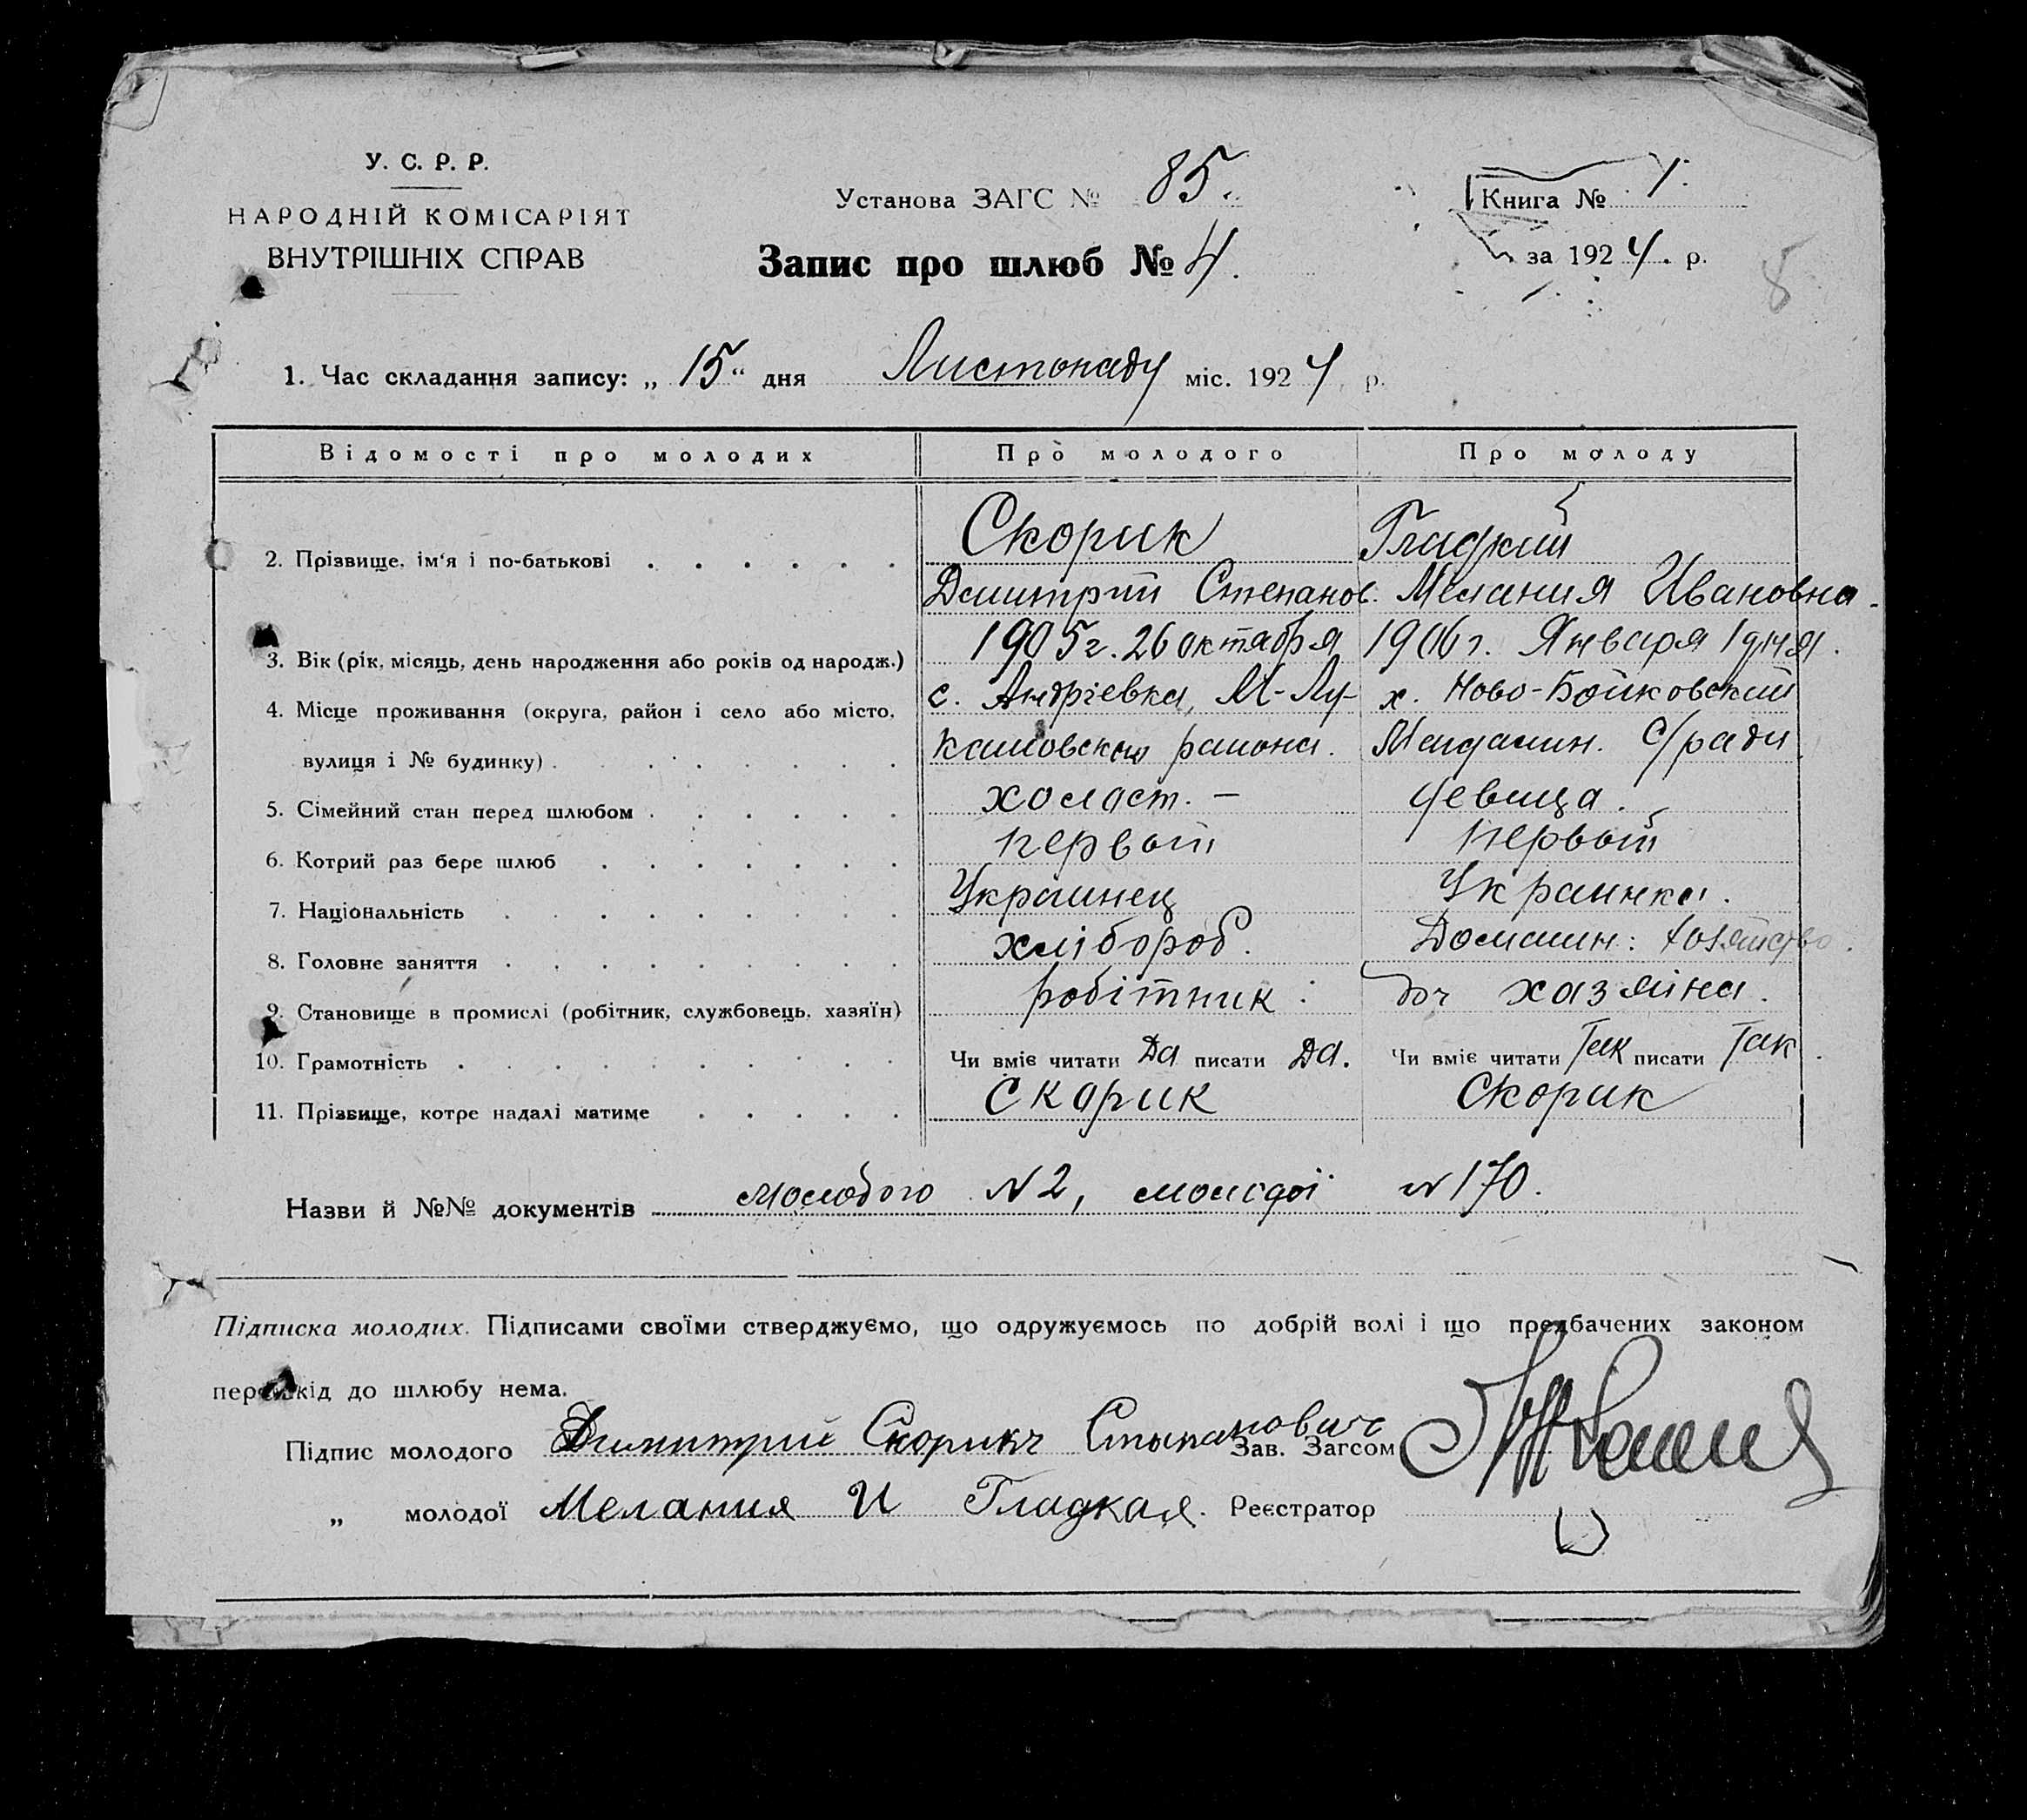 У. С. Р. Р.
НАРОДНІЙ КОМІСАРІЯТ
ВНУТРІШНІХ СПРАВ
Установа ЗАГС № 85.
Запис про шлюб № 4.
Книга №
за 1924. р.
8
1. Час складання запису: „ 15 “ дня Листопаду міс. 1924 р.
Відомості про молодих Про молодого Про молоду
Скорик Гладкий
2. Прізвище, ім'я і по-батькові
Димитрий Степанов. Мелания Ивановна.
1905 г. 26 октября 1906 г. Января 1 дня.
3. Вік (рік, місяць, день народження або років од народж.)
с. Андріевка, М-Лу- х. Ново-Бойковский
4. Місце проживання (округа, район і село або місто,
кашовского района. Майдачин. С/ради
вулиця і № будинку)
5. Сімейний стан перед шлюбом холост. – девица.
6. Котрий раз бере шлюб первый первый
7. Національність Украинец Украинка.
8. Головне заняття хлібороб. Домашн: хозяйство.
9. Становище в промислі (робітник, службовець, хазяїн) робітник: доч хазяіна.
10. Грамотність Чи вміє читати Да писати Да. Чи вміє читати Так писати Так.
11. Прізвище, котре надалі матиме Скорик Скорик
Назви й №№ документів молодого N 2, молодої N 170.
Підписка молодих. Підписами своїми стверджуємо, що одружуємось по добрій волі і що предбачених законом
перешкід до шлюбу нема.
Підпис молодого Димитрий Скорикъ Стыпановичь Зав. Загсом
„ молодої Мелания И Гладкая. Реєстратор